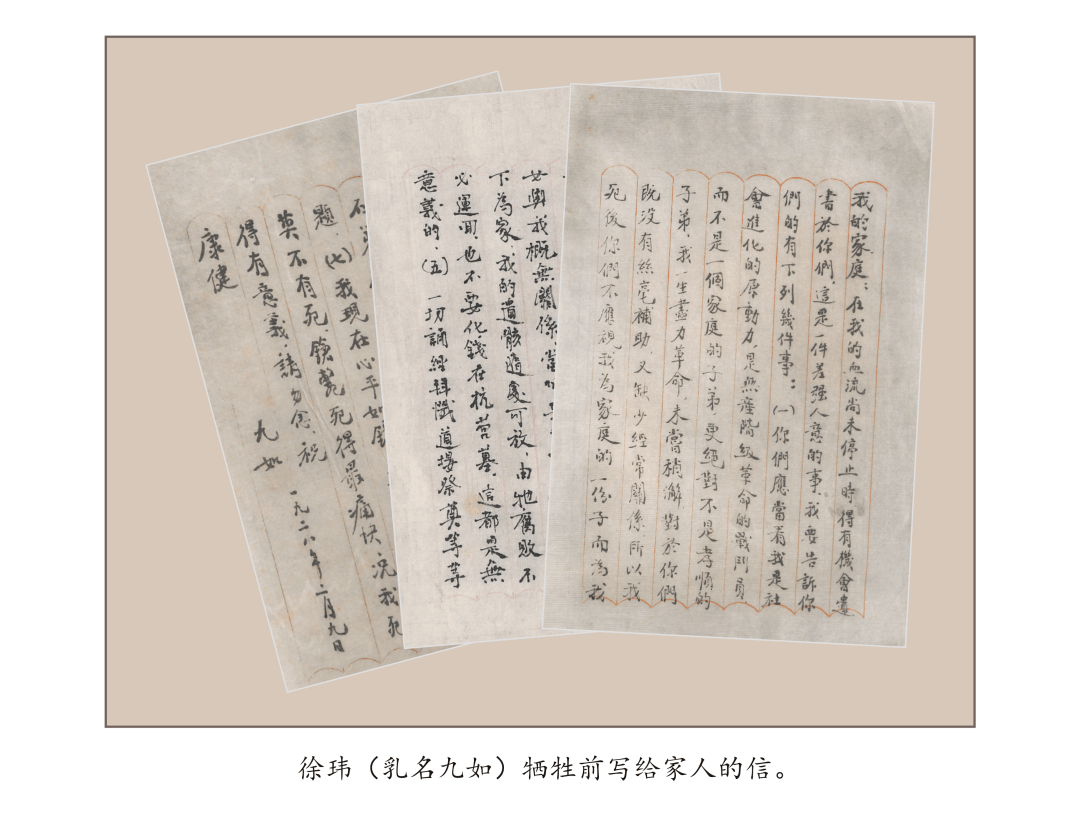 我的家庭：在我的血流尚未停止時得有機會遺
書於你們，這是一件差強人意的事、我要告訴你
們的有下列幾件事：(一)你們應當看我是社
會進化的原動力，是無產階級革命的戰鬥員
而不是一個家庭的子弟，更絕對不是孝順的
子弟，我一生盡力革命，未嘗稍懈，對於你們
既没有絲毫補助，又缺少經常關係，所以我
死後你們不應視我為家庭的一份子而為我
女與我概無關係，當
下為家，我的遺骸隨處可放，由牠腐敗不
必運回，也不要化錢在杭营墓，這都是無
意義的、(五)一切誦經拜懺道場祭奠等等
題、(七)我現在心平如鏡
莫不有死，鎗斃死得最痛快，況我死
得有意義，請勿念、祝
康健
九如
一九二八年二月九日
徐玮（乳名九如）牺牲前写给家人的信。